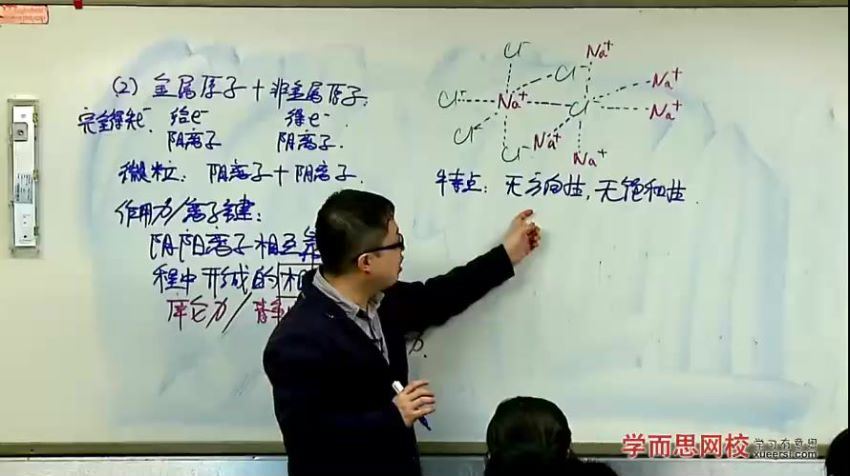 (2) 金属原子+非金属原子:
完全得失e⁻. 给e⁻ 得e⁻.
阳离子 阴离子.
微粒: 阴离子+阳离子.
作用力/离子键:
阴阳离子相互靠
程中形成的相
库仑力/静
Cl⁻ Na⁺
Cl⁻ Na⁺
Cl⁻ Na⁺ Cl⁻ Na⁺
Cl⁻ Na⁺
Cl⁻ Na⁺
特点: 无方向性, 无饱和性.
力.
学而思网校 学习有意思
xueersi.com